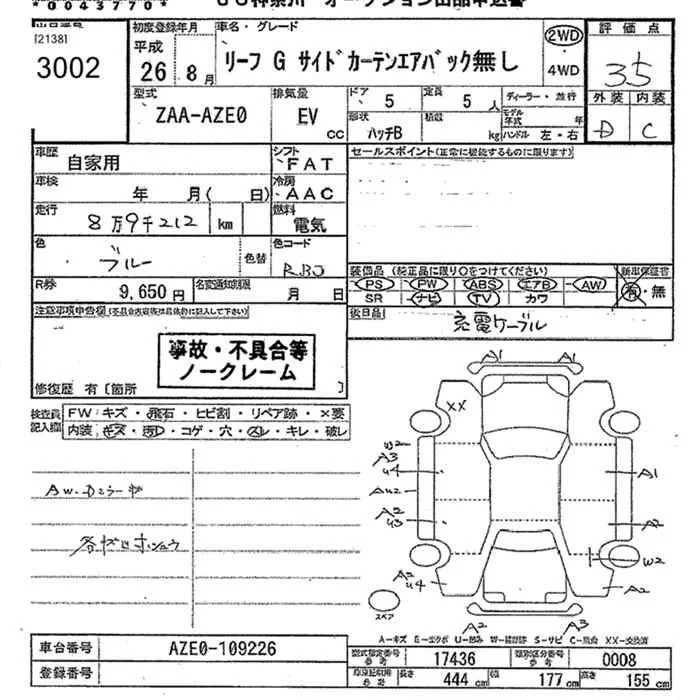 *0043770*
[2138]
3002
初度登録年月
平成
26年 8月
車名・グレード
リーフ G サイドカーテンエアバック無し
2WD
・4WD
評価点
3.5
外装 内装
D C
型式
ZAA-AZE0
排気量
EV
CC
ドア 5
定員 5人
形状 ハッチB
積載 kg
ディーラー・並行
モデル年式 年
ハンドル 左・右
車歴 自家用
シフト FAT
車検 年 月( 日)
冷房 AAC
走行 8万9千212 km
燃料 電気
色 ブルー 色替
色コード RBJ
R券 9,650円
名変通知期限 月 日
セールスポイント(正常に機能するものに限ります)
装備品 (純正品に限り○をつけてください) 新車保証書
PS PW ABS エアB AW 有・無
SR ナビ TV カワ
後日品 充電ケーブル
注意事項申告欄
事故・不具合等
ノークレーム
修復歴 有〔箇所 〕
検査員記入欄
FW:キズ・飛石・ヒビ割・リペア跡・×要
内装:キズ・汚れ・コゲ・穴・スレ・キレ・破レ
A1 A1
XX
U2
A3
U4
AU2
A2
U3
A1
A2
W2
A2
U4
A2
A2 A3
スペア
A-キズ E-エクボ U-凹み W-補修跡 S-サビ C-腐食 XX-交換済
車台番号 AZE0-109226
登録番号
型式指定番号 参考 17436
類別区分番号 参考 0008
長さ 444cm
幅 177cm
高さ 155cm